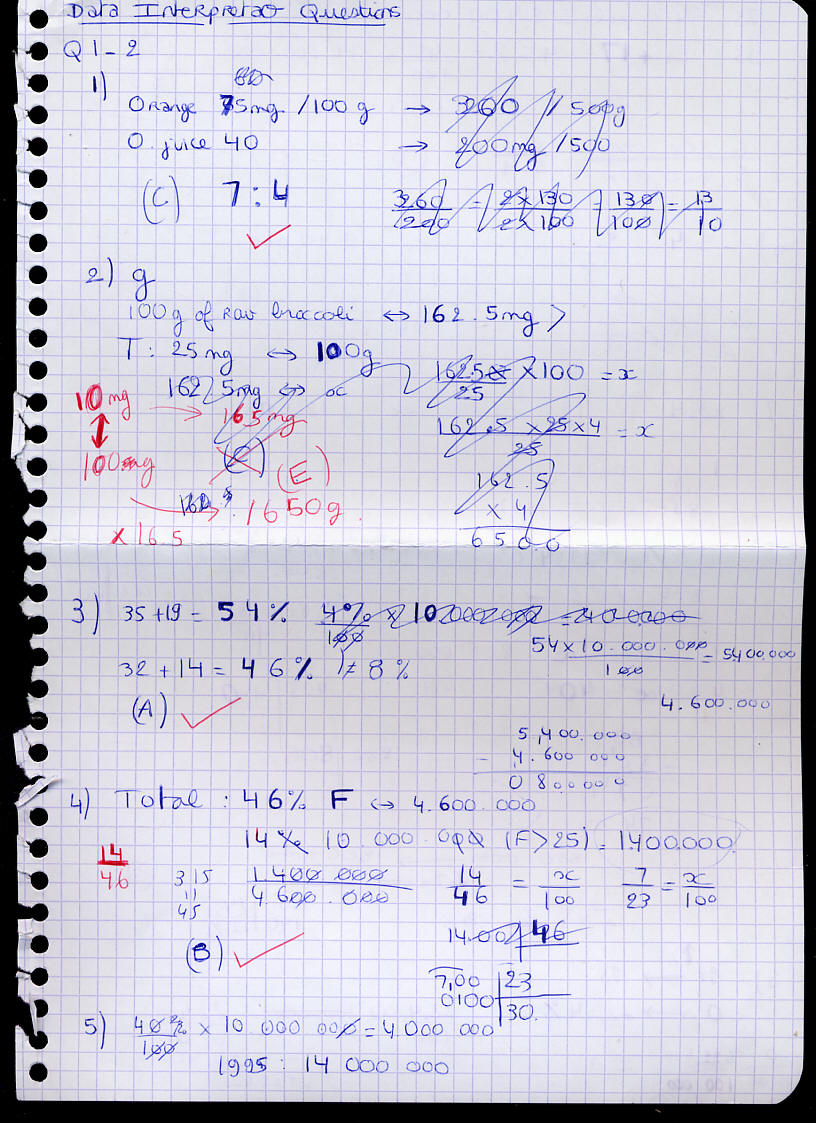 Data Interpretao Questions
Q 1 - 2
1)
Orange 75mg / 100 g → 3260 / 500g
O. juice 40 → 200mg / 500
(C) 7 : 4
3260/200 = 2 x 130/2 x 100 = 130/100 = 13/10
2) g
100g of raw broccoli ↔ 162.5mg >
T : 25 mg ↔ 100g
162.5mg ↔ x
162.5 x 100/25 = x
10mg → 165mg
162.5 x 25 x 4/25 = x
↕
100mg
(C) (E)
→ 1650g.
x 16.5
162.5
x 4
650.0
3) 35 + 19 = 54% 4%/100 x 10 000 000 = 40.000
54 x 10.000.000/100 = 5400.000
32 + 14 = 46% ≠ 8%
(A)
4.600.000
5,400.000
- 4.600 000
0 800000
4) Total : 46% F ↔ 4.600.000
14% 10 000.000 (F > 25) = 1400.000.
14/46
315
45
1.400 000/4.600.000
14/46 = x/100
7/23 = x/100
(B)
14.00 46
7,00 23
0100 30.
5) 40%/100 x 10 000 000 = 4.000 000
1995 : 14 000 000